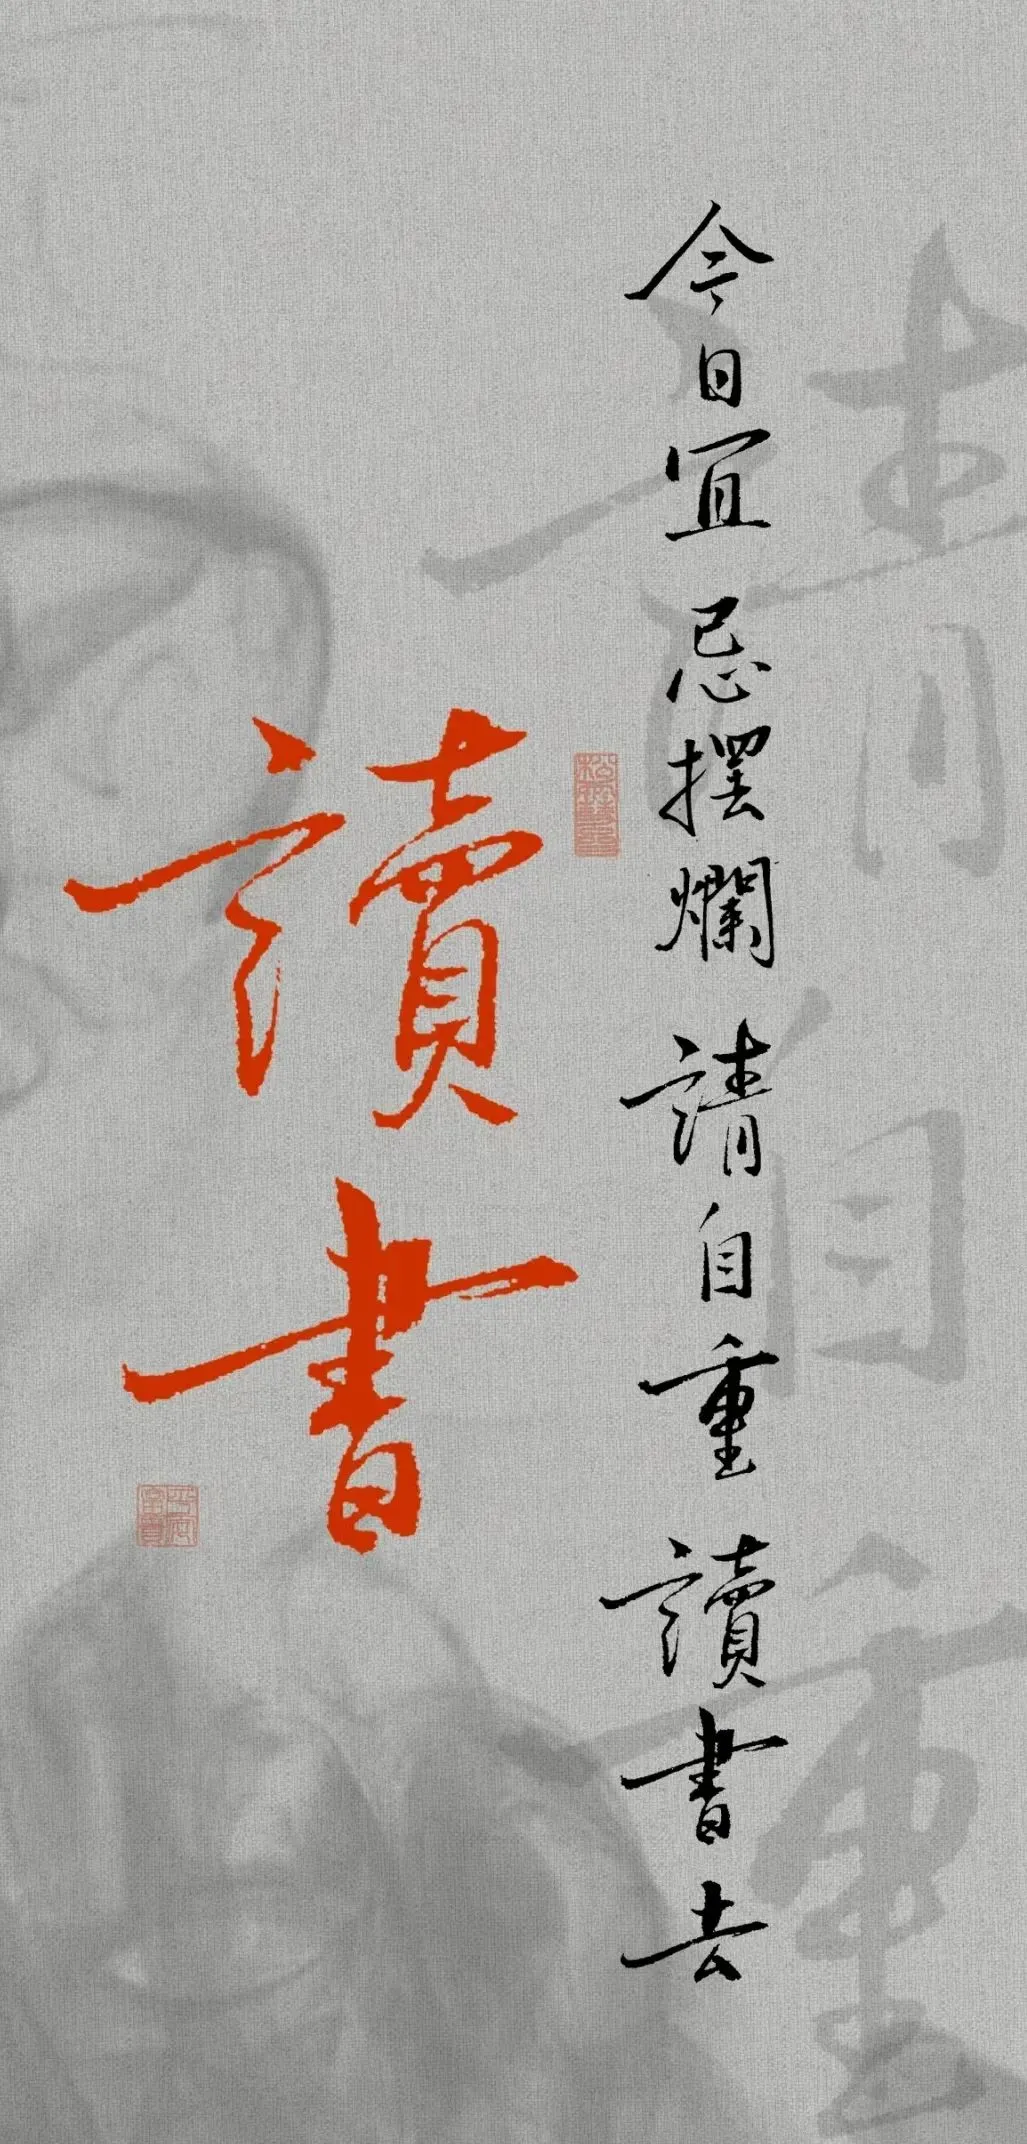 請自重
今日宜 忌摆爛 請自重 讀書去
讀書